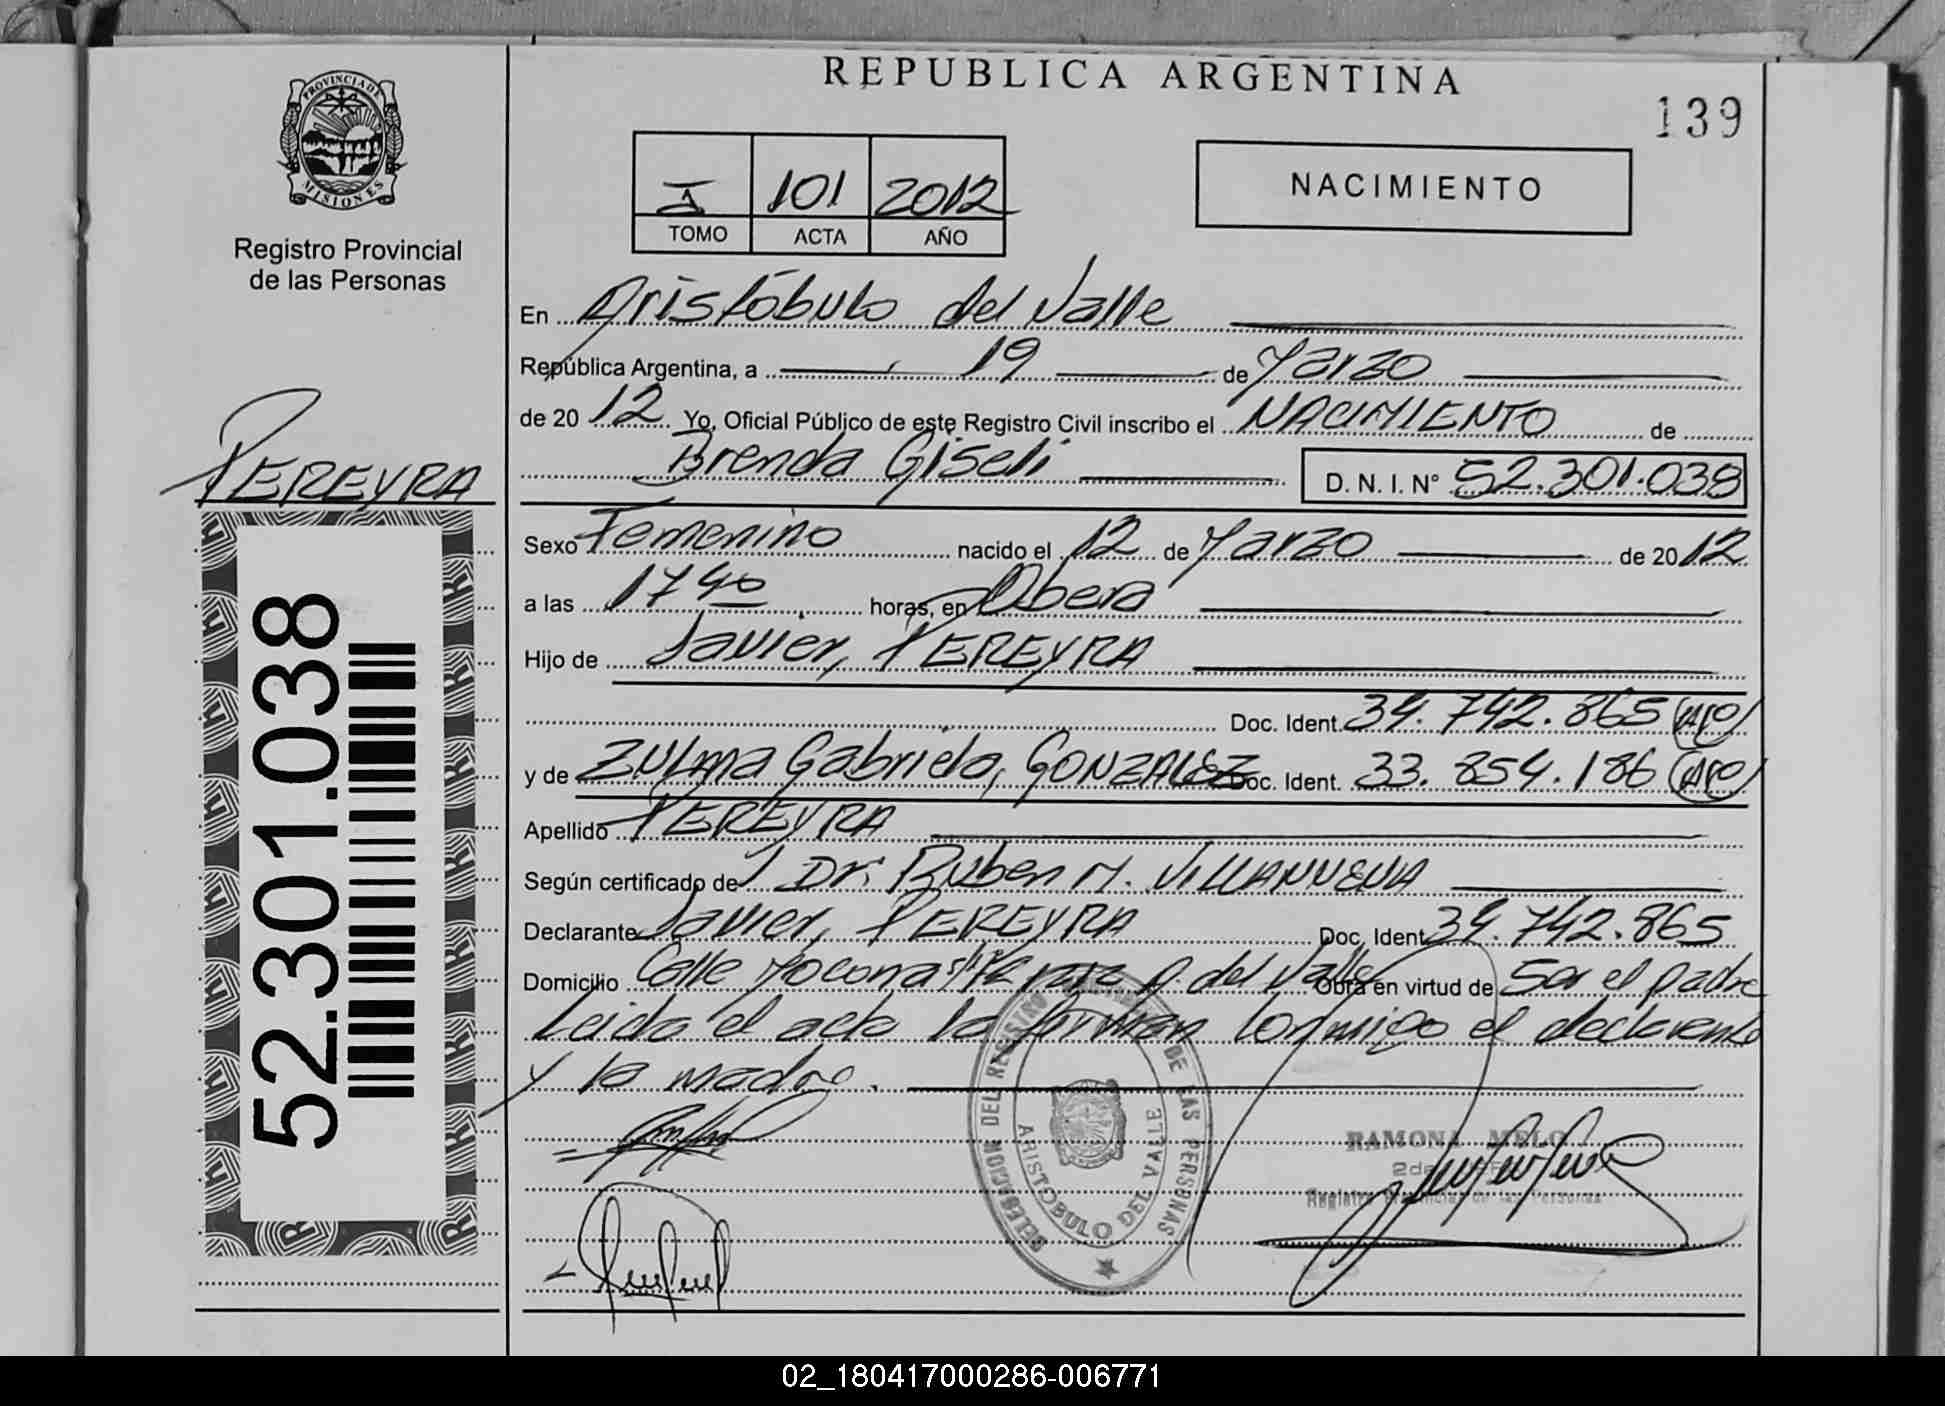 REPUBLICA ARGENTINA
139
PROVINCIA DE
MISIONES
Registro Provincial
de las Personas
I 101 2012
TOMO ACTA AÑO
NACIMIENTO
En Aristóbulo del Valle
República Argentina, a 19 de Marzo
de 20 12 Yo, Oficial Público de este Registro Civil inscribo el NACIMIENTO de
Brenda Giseli D. N. I. N° 52.301.038
PEREYRA
52.301.038
Sexo Femenino nacido el 12 de Marzo de 20 12
a las 17 40 horas, en Obera
Hijo de Javier, PEREYRA
Doc. Ident. 34.742.865
y de Zulma Gabriela, GONZALEZ Doc. Ident. 33.854.186
Apellido PEREYRA
Según certificado de Dr. Ruben M. VILLANUEVA
Declarante Javier, PEREYRA Doc. Ident 34.742.865
Domicilio Calle Mocona A. del Valle Obra en virtud de Ser el padre
Leida el acta la firman conmigo el declarante
y la madre.
DELEGACION DEL REGISTRO PROVINCIAL DE LAS PERSONAS
ARISTOBULO DEL VALLE
RAMONA MELO
Registro Provincial de las Personas
02_180417000286-006771